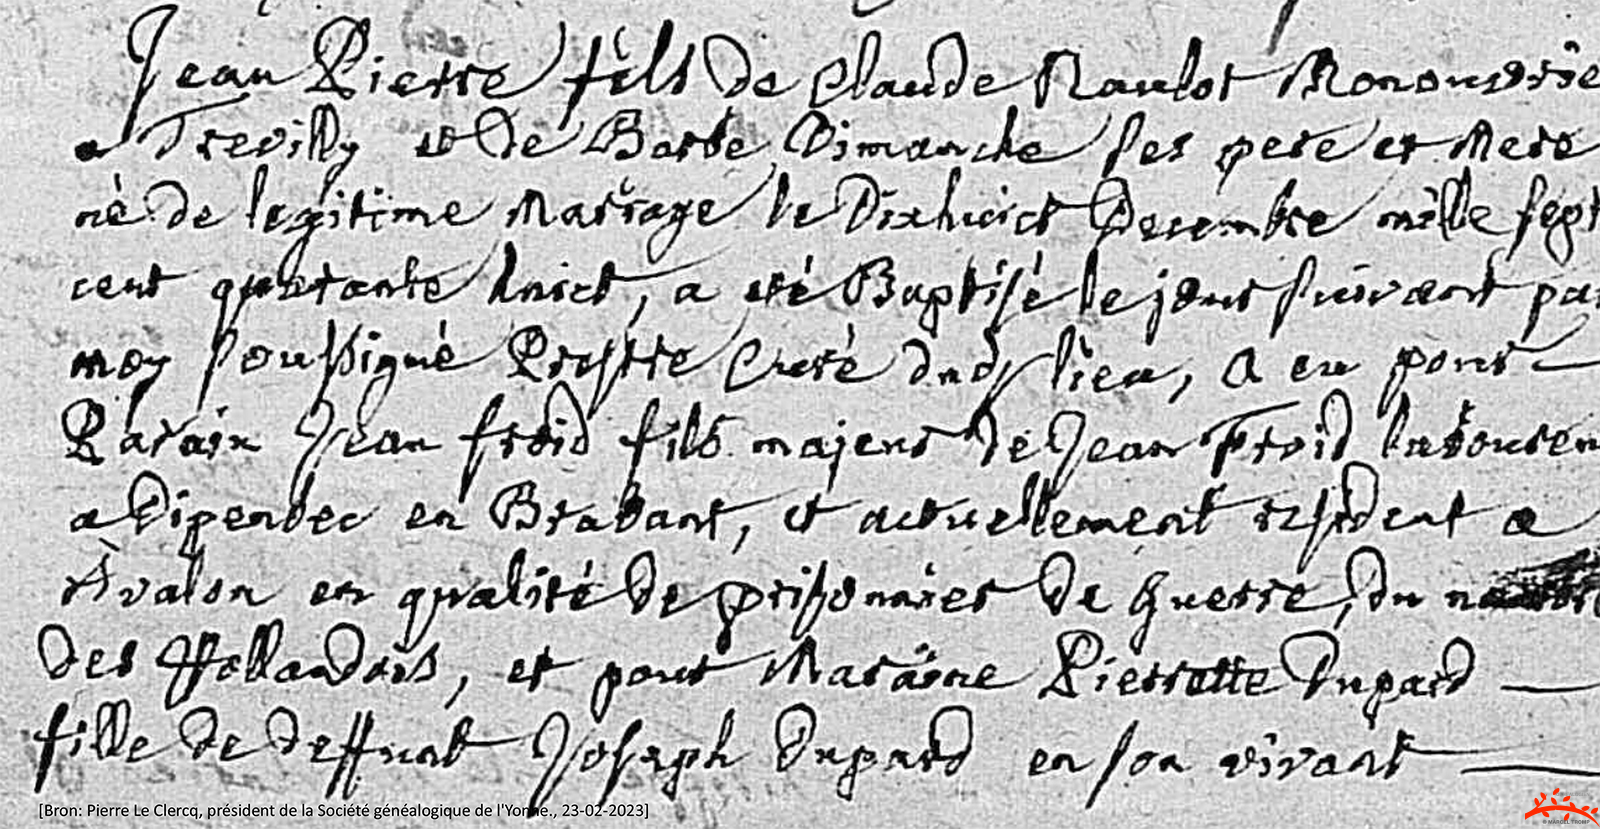 Jean Pierre fils de Claude Raulot Manouvrie
a Trevilly et de Barbe Dimanche ses pere et Mere
né de legitime Mariage le Dixhuict Decembre mille sept
cent quarante huict, a eté Baptisé le jour suivant par
moy soussigné Prestre Curé dud lieu, A eu pour
Parain Jean froid fils majeur de Jean Froid laboureu
a Dipenbec en Brabant, et actuellement resident a
Avalon en qualité de prisonnier de Guerre, du
des Hollandois, et pour Maraine Pierrette Dupard
fille de deffunt Joseph Dupard en son vivant
[Bron: Pierre Le Clercq, président de la Société généalogique de l'Yonne., 23-02-2023]
© MARCEL TROMP